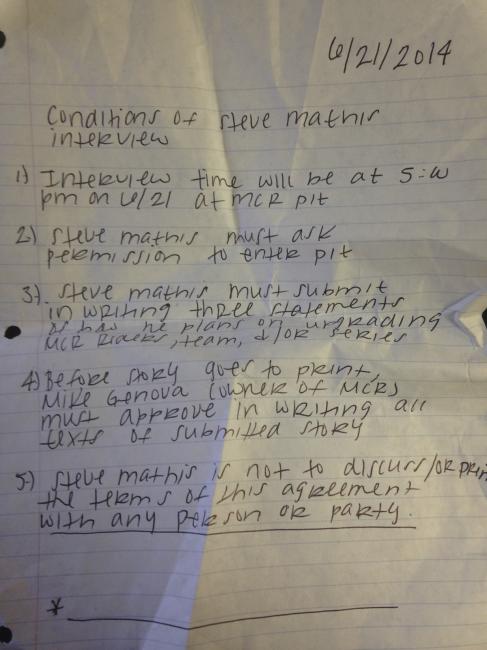 6/21/2014
Conditions of steve mathis
interview
1) Interview time will be at 5:00
pm on 6/21 at mcr pit
2) steve mathis must ask
permission to enter pit
3). steve mathis must submit
in writing three statements
of how he plans on upgrading
MCR Riders, team, &/or series
4) Before story goes to print,
Mike Genova (owner of MCR)
must approve in writing all
texts of submitted story
5) steve mathis is not to discuss/or print
the terms of this agreement
with any person or party.
*